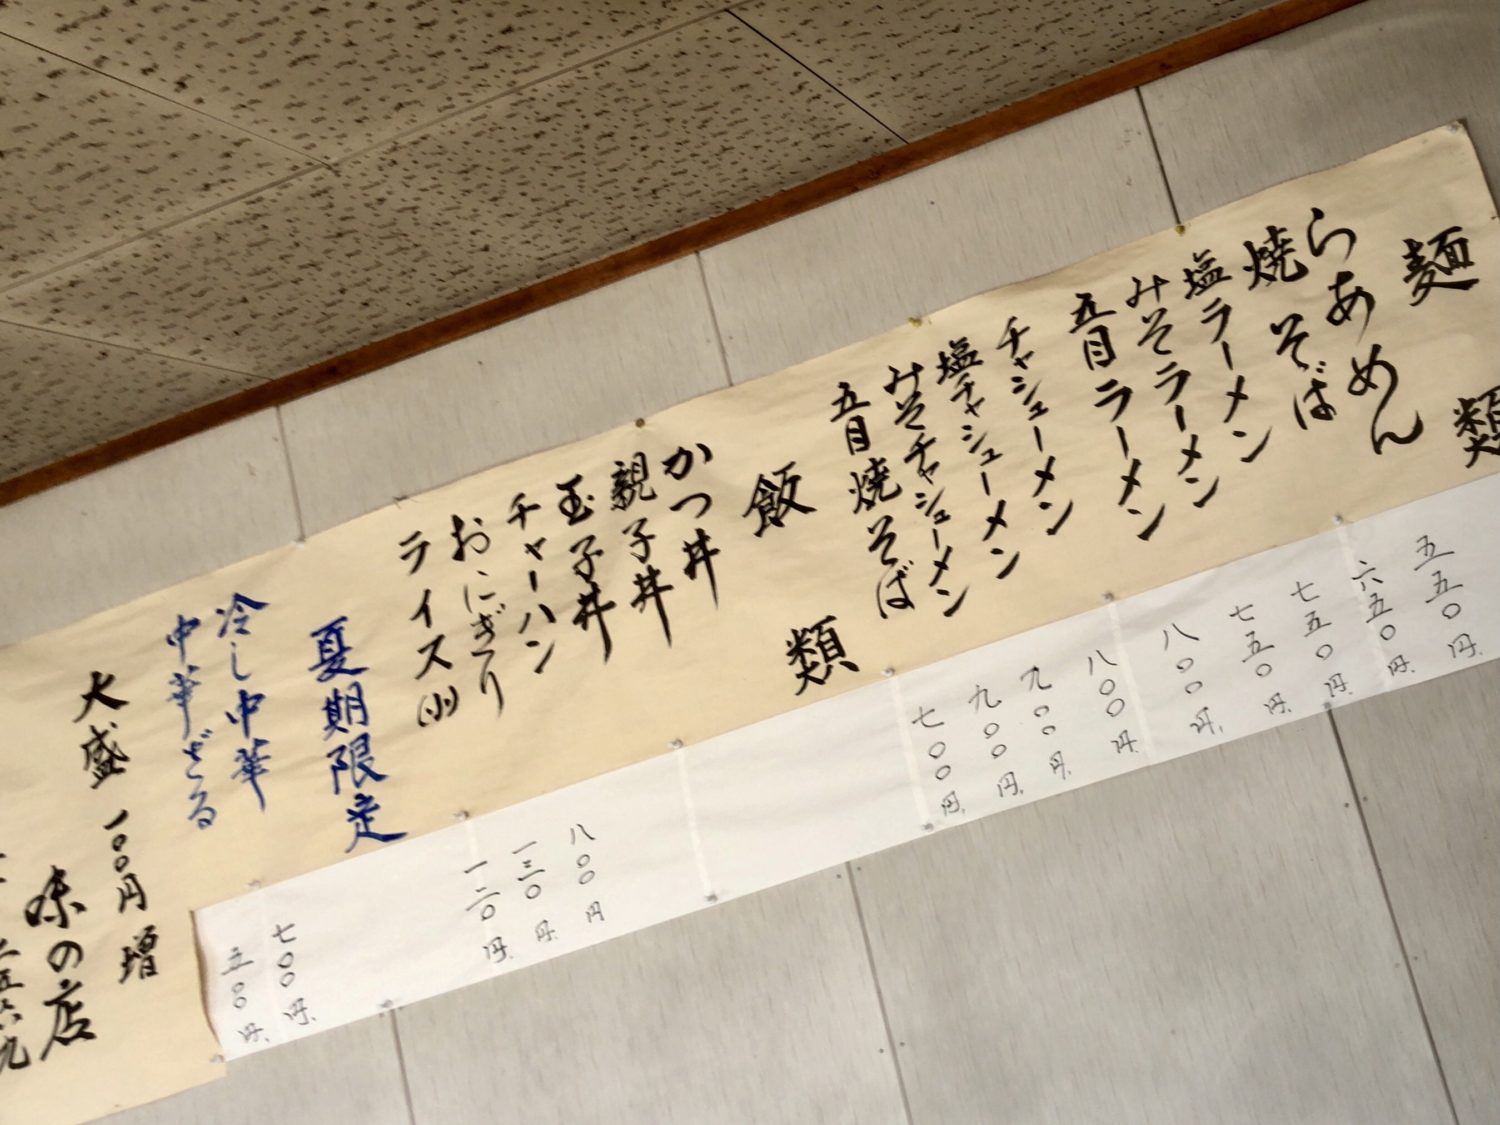 麺類
らあめん 五五〇円
焼そば 六五〇円
塩ラーメン 七五〇円
みそラーメン 七五〇円
五目ラーメン 八〇〇円
チャシューメン 八〇〇円
塩チャシューメン 九〇〇円
みそチャシューメン 九〇〇円
五目焼そば 七〇〇円
飯類
かつ丼
親子丼
玉子丼
チャーハン 八〇〇円
おにぎり 一三〇円
ライス(小) 一二〇円
夏期限定
冷し中華 七〇〇円
中華ざる 五〇〇円
大盛 一〇〇円増
味の店
五六九